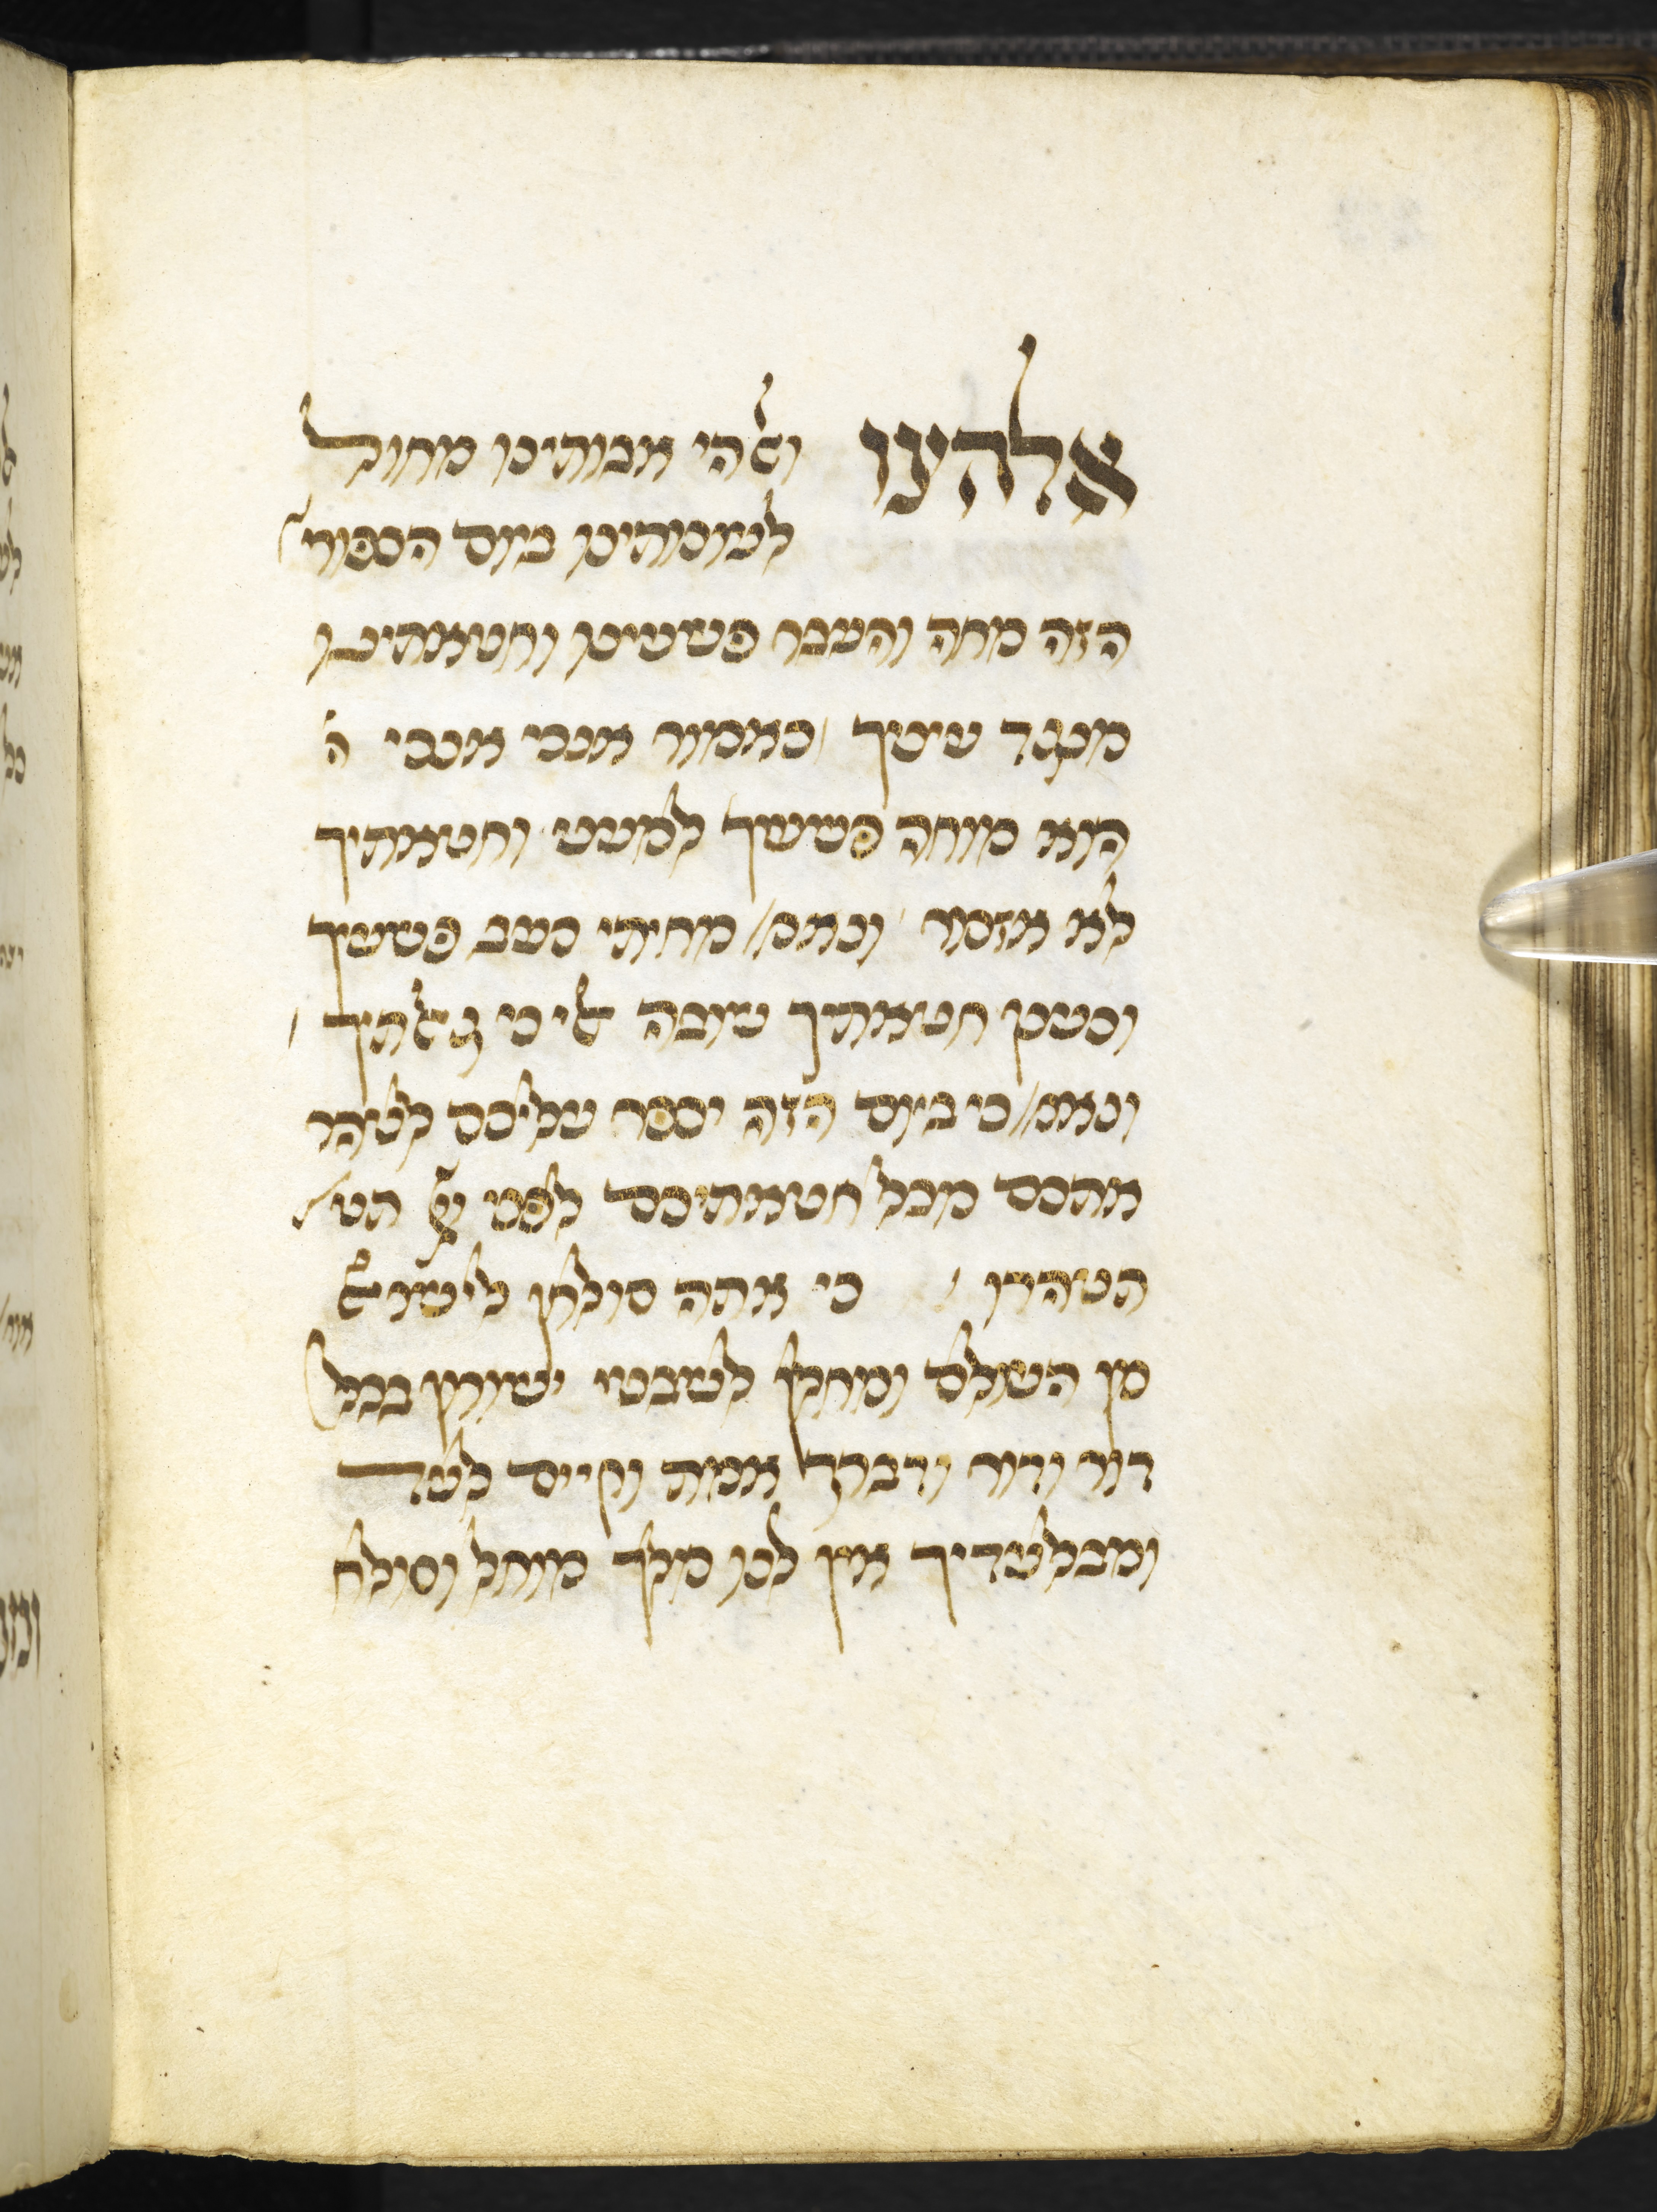 אלהינו ואלהי אבותינו מחול
לעונותינו ביום הכפורי׳
הזה מחה והעבר פשעינו וחטאתינו
מנגד עיניך כאמור אנכי אנכי ה׳
הוא מוחה פשעיך למעני וחטאתיך
לא אזכור ונאמ׳ מחיתי כעב פשעיך
וכענן חטאתיך שובה אלי כי גאלתיך
ונאמ׳ כי ביום הזה יכפר עליכם לטהר
אתכם מכל חטאתיכם לפני יי׳ תט׳
תטהרו כי אתה סולחן לישראל
מן העולם ומחלן לשבטי ישורון בכל
דור ודור ודברך אמת וקיים לעד
ומבלעדיך אין לנו מלך מוחל וסולח